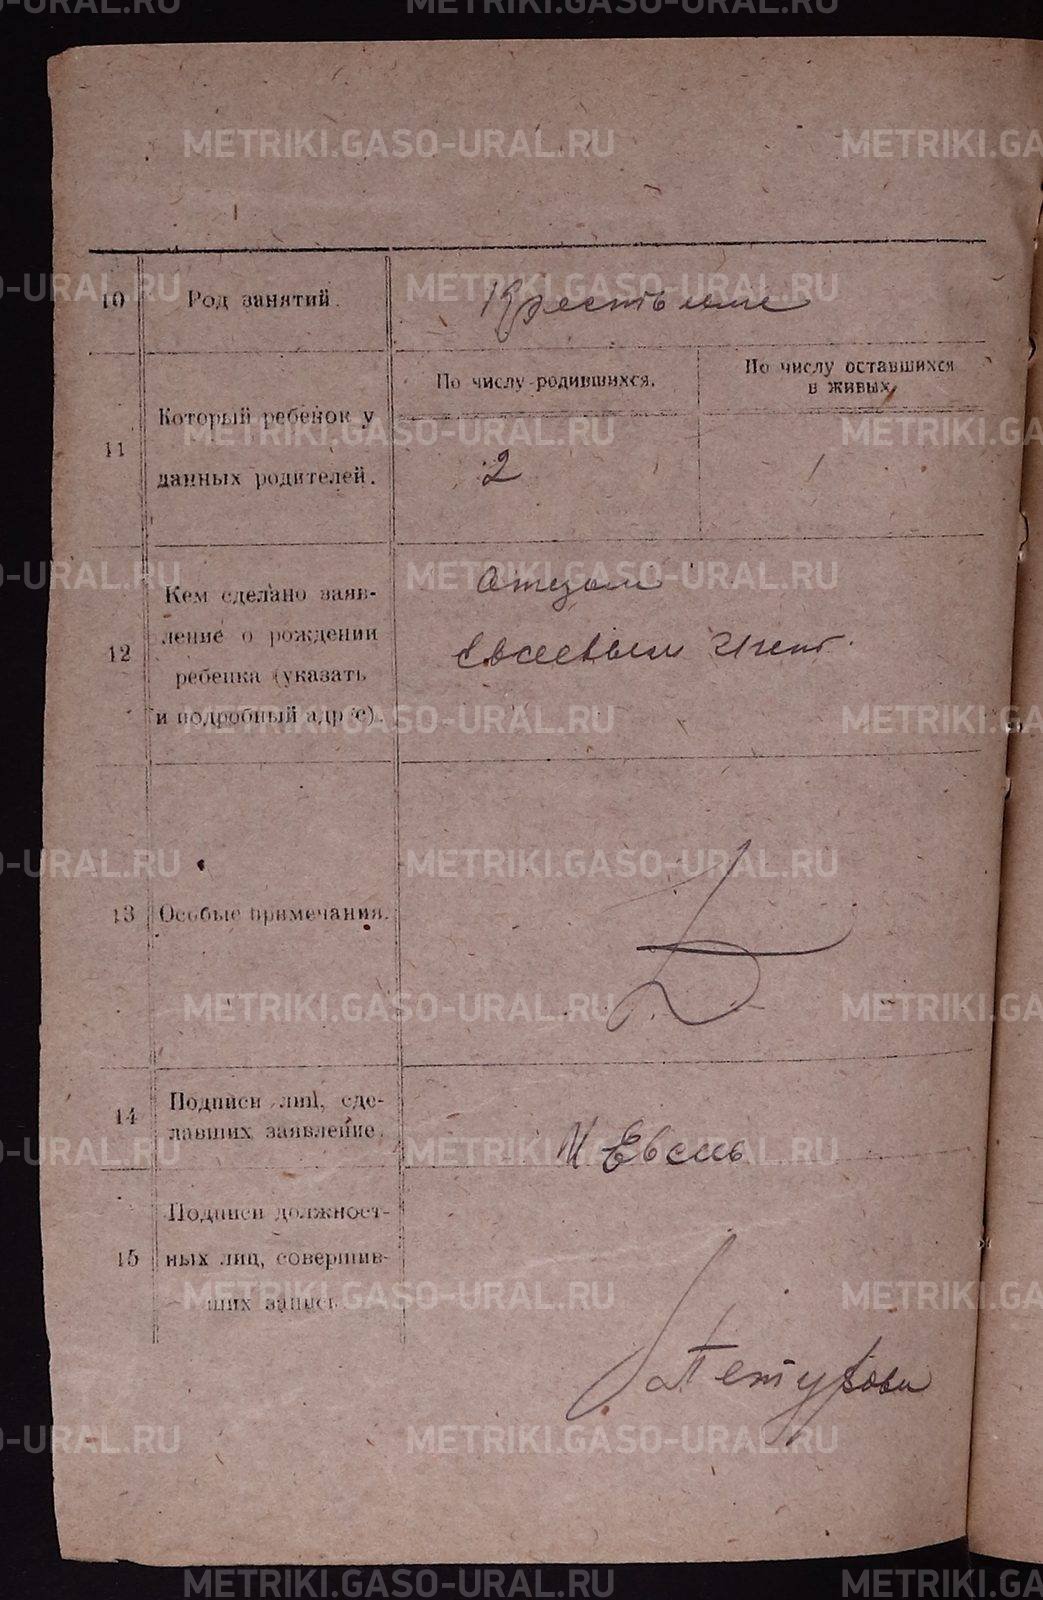 10 Род занятий. Крестьяне
11 Который ребенок у данных родителей.
По числу родившихся.
По числу оставшихся
в живых
2
12 Кем сделано заяв-
ление о рождении
ребенка (указать
и подробный адрес).
Отцом
Евсеевым Игнт.
13 Особые примечания.
14 Подписи лиц, сде-
лавших заявление.
И Евсеь
15 Подписи должност-
ных лиц, совершив-
ших запись
METRIKI.GASO-URAL.RU